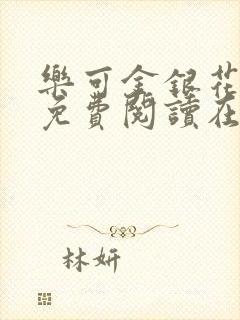 樂可金銀花
免費閱讀在
林妍